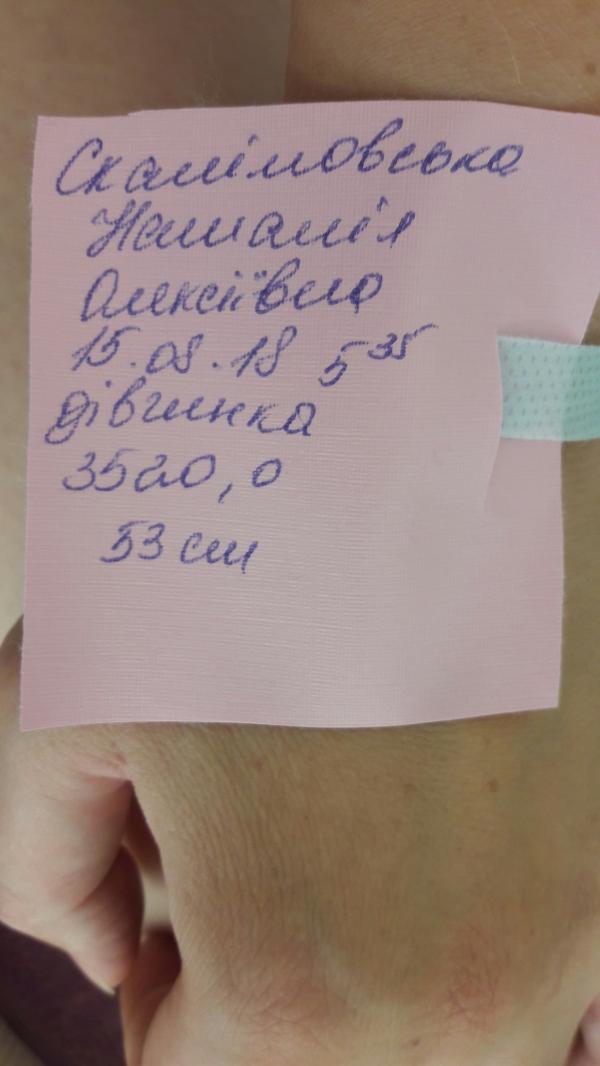 Скалімовська
Наталія
Олексіївна
15.08.18 5³⁵
дівчинка
3520,0
53 см